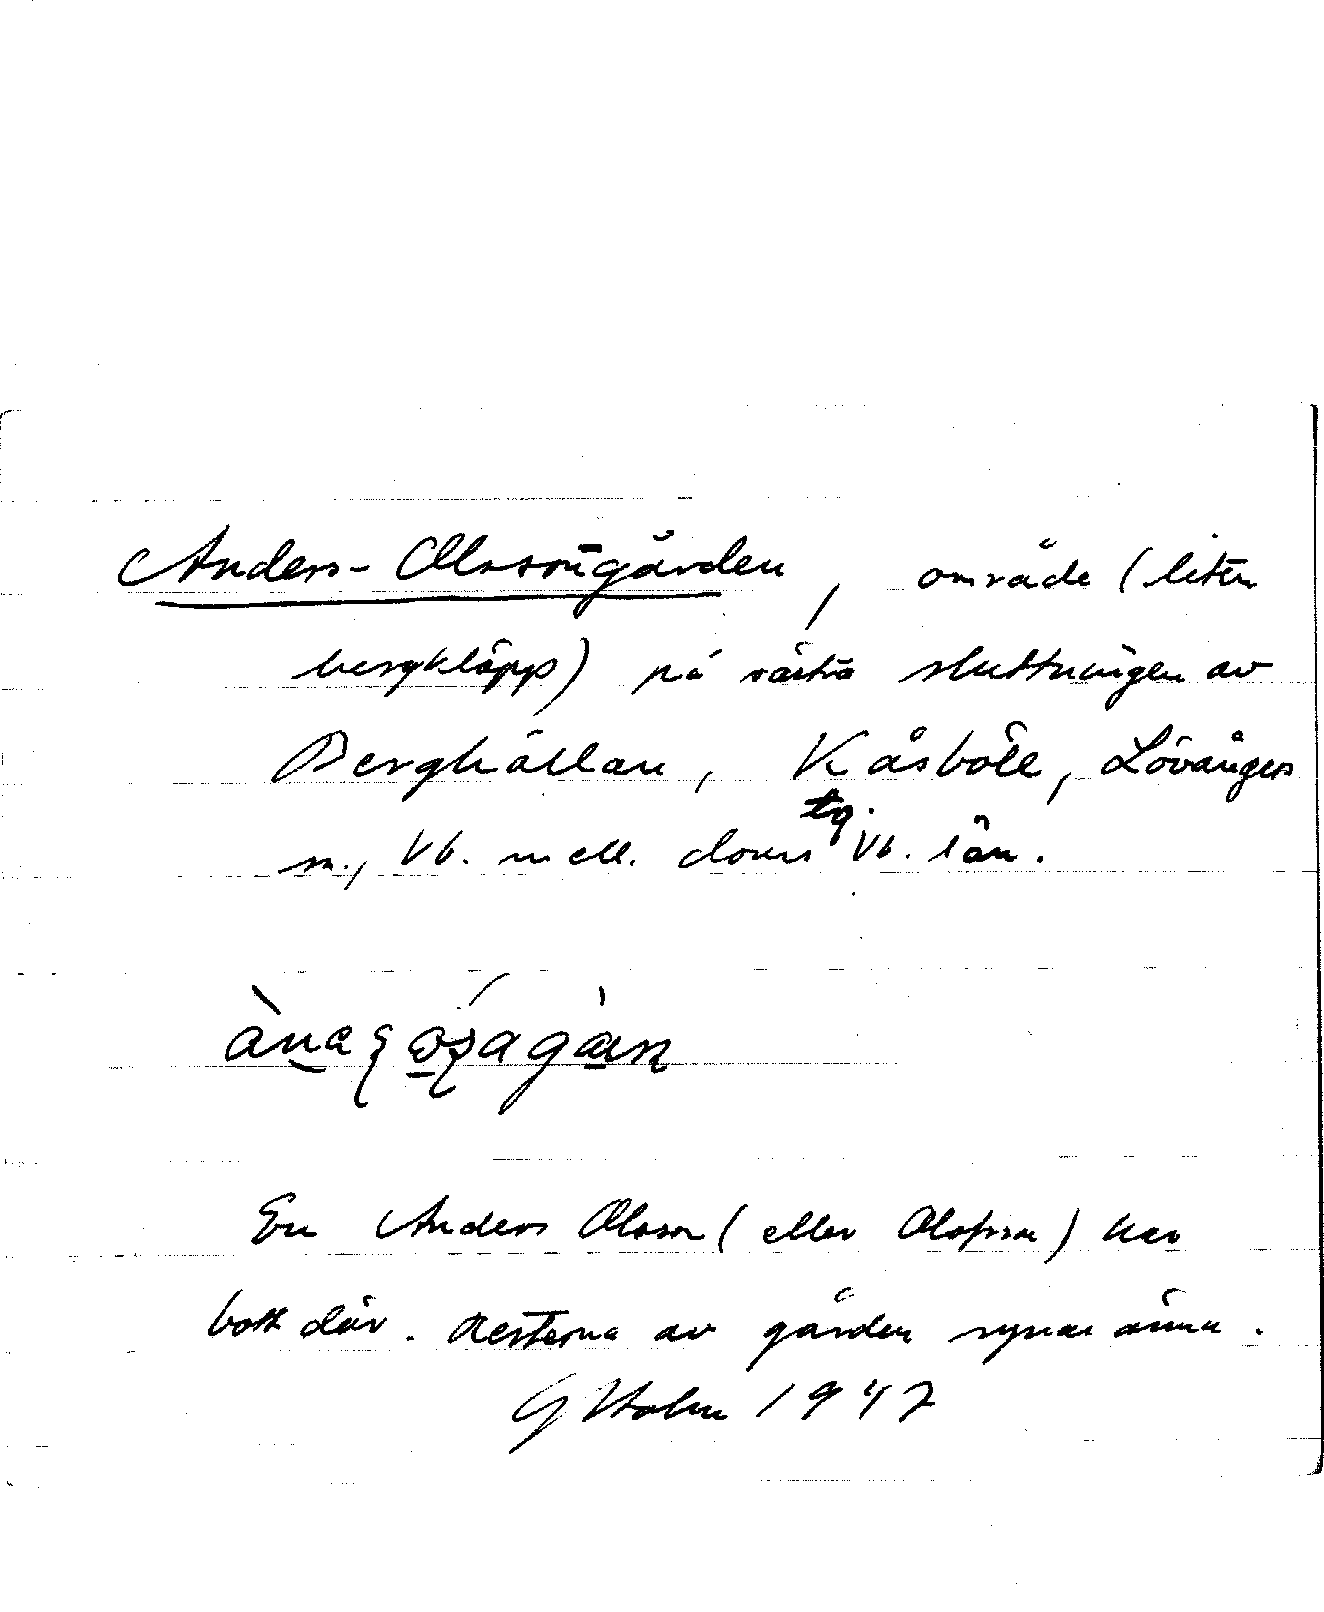 Anders-Olssongården, område (liten
bergkläpp) på västra sluttningen av
Berghällan, Kåsböle, Lövångers
sn., Vb. mell. doms tg. Vb. län.
En Anders Olsson (eller Olofsson) har
bott där. Resterna av gården synas ännu.
G Holm 1947